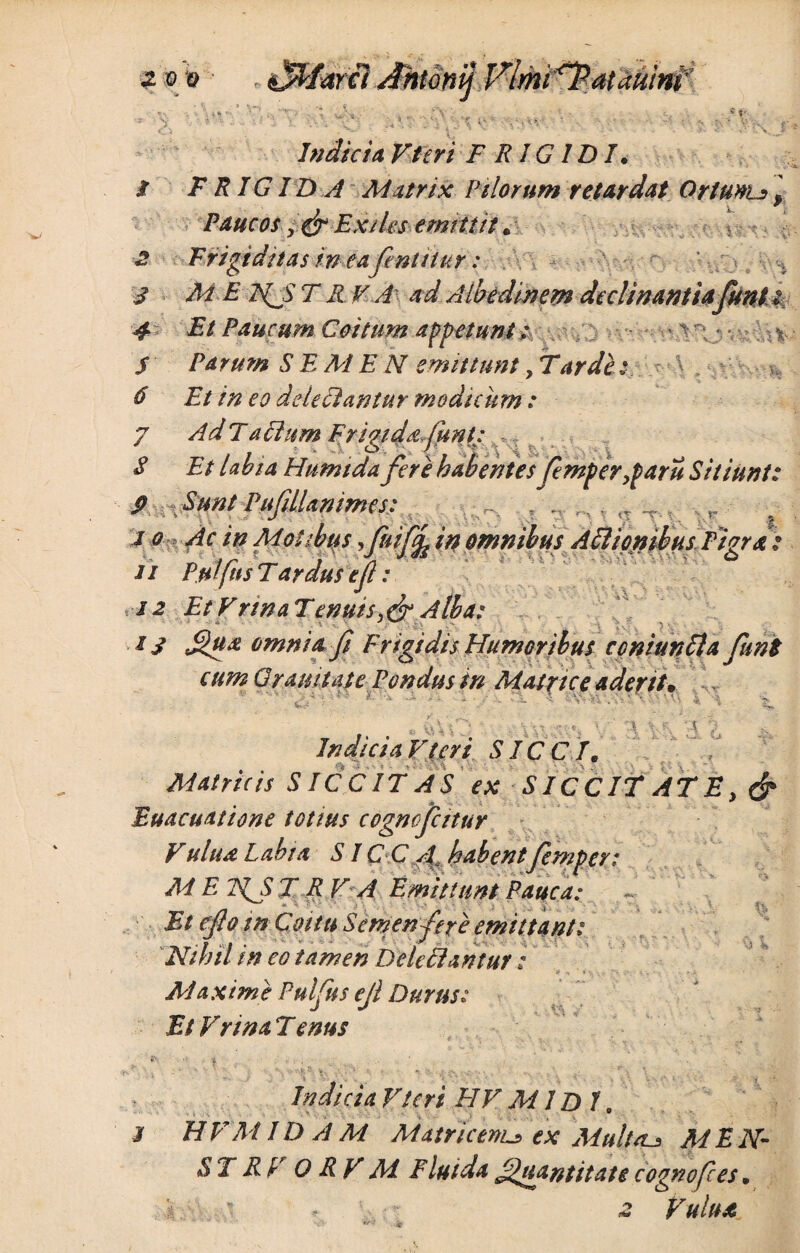 200 Marci Antonij Vlmi Patauini
Indicia Vteri FRIGIDI.
1 FRIGIDA Matrix Pilorum retardat Ortum,
Paucos, & Exiles emittit.
2 Frigiditas in ea sentitur:
3 MENSTRVA ad Albedinem declinantia sunt:
4 Et Paucum Coitum appetunt:
5 Parum SEMEN emittunt, Tardè:
6 Et in eo delectantur modicùm:
7 Ad Tactum Frigidæ sunt:
8 Et labia Humida ferè habentes semper, parũ Sitiunt:
9 Sunt Pusillanimes:
10 Ac in Motibus, suisq; in omnibus Actionibus Pigræ:
11 Pulsus Tardus est:
12 Et Vrina Tenuis, & Alba:
13 Quæ omnia si Frigidis Humoribus coniuncta sunt
cum Grauitate Pondus in Matrice aderit.
Indicia Vteri SICCI.
Matricis SICCITAS ex SICCITATE, &
Euacuatione totius cognoscitur
Vuluæ Labia SICCA habent semper:
MENSTRVA Emittunt Pauca:
Et esto in Coitu Semen ferè emittant:
Nihil in eo tamen Delectantur:
Maximè Pulsus est Durus:
Et Vrina Tenus
Indicia Vteri HVMIDI.
1 HVMIDAM Matricem ex Multa MEN-
STRVORVM Fluida Quantitate cognosces.
2 Vuluæ